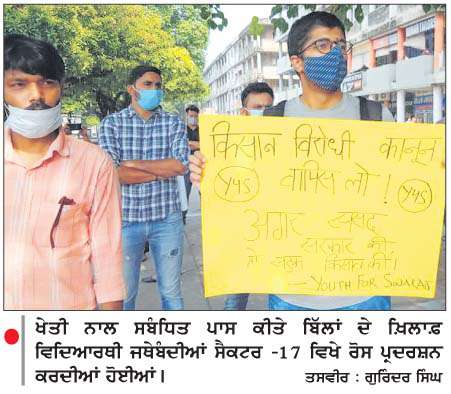 किसान विरोधी कानून
वापिस लो !
Y4S
Y4S
अगर संसद
सरकार की
तो सड़क किसान की।
- YOUTH FOR SWARAJ
ਖੇਤੀ ਨਾਲ ਸਬੰਧਿਤ ਪਾਸ ਕੀਤੇ ਬਿੱਲਾਂ ਦੇ ਖ਼ਿਲਾਫ਼
ਵਿਦਿਆਰਥੀ ਜਥੇਬੰਦੀਆਂ ਸੈਕਟਰ -17 ਵਿਖੇ ਰੋਸ ਪ੍ਰਦਰਸ਼ਨ
ਕਰਦੀਆਂ ਹੋਈਆਂ।
ਤਸਵੀਰ : ਗੁਰਿੰਦਰ ਸਿੰਘ